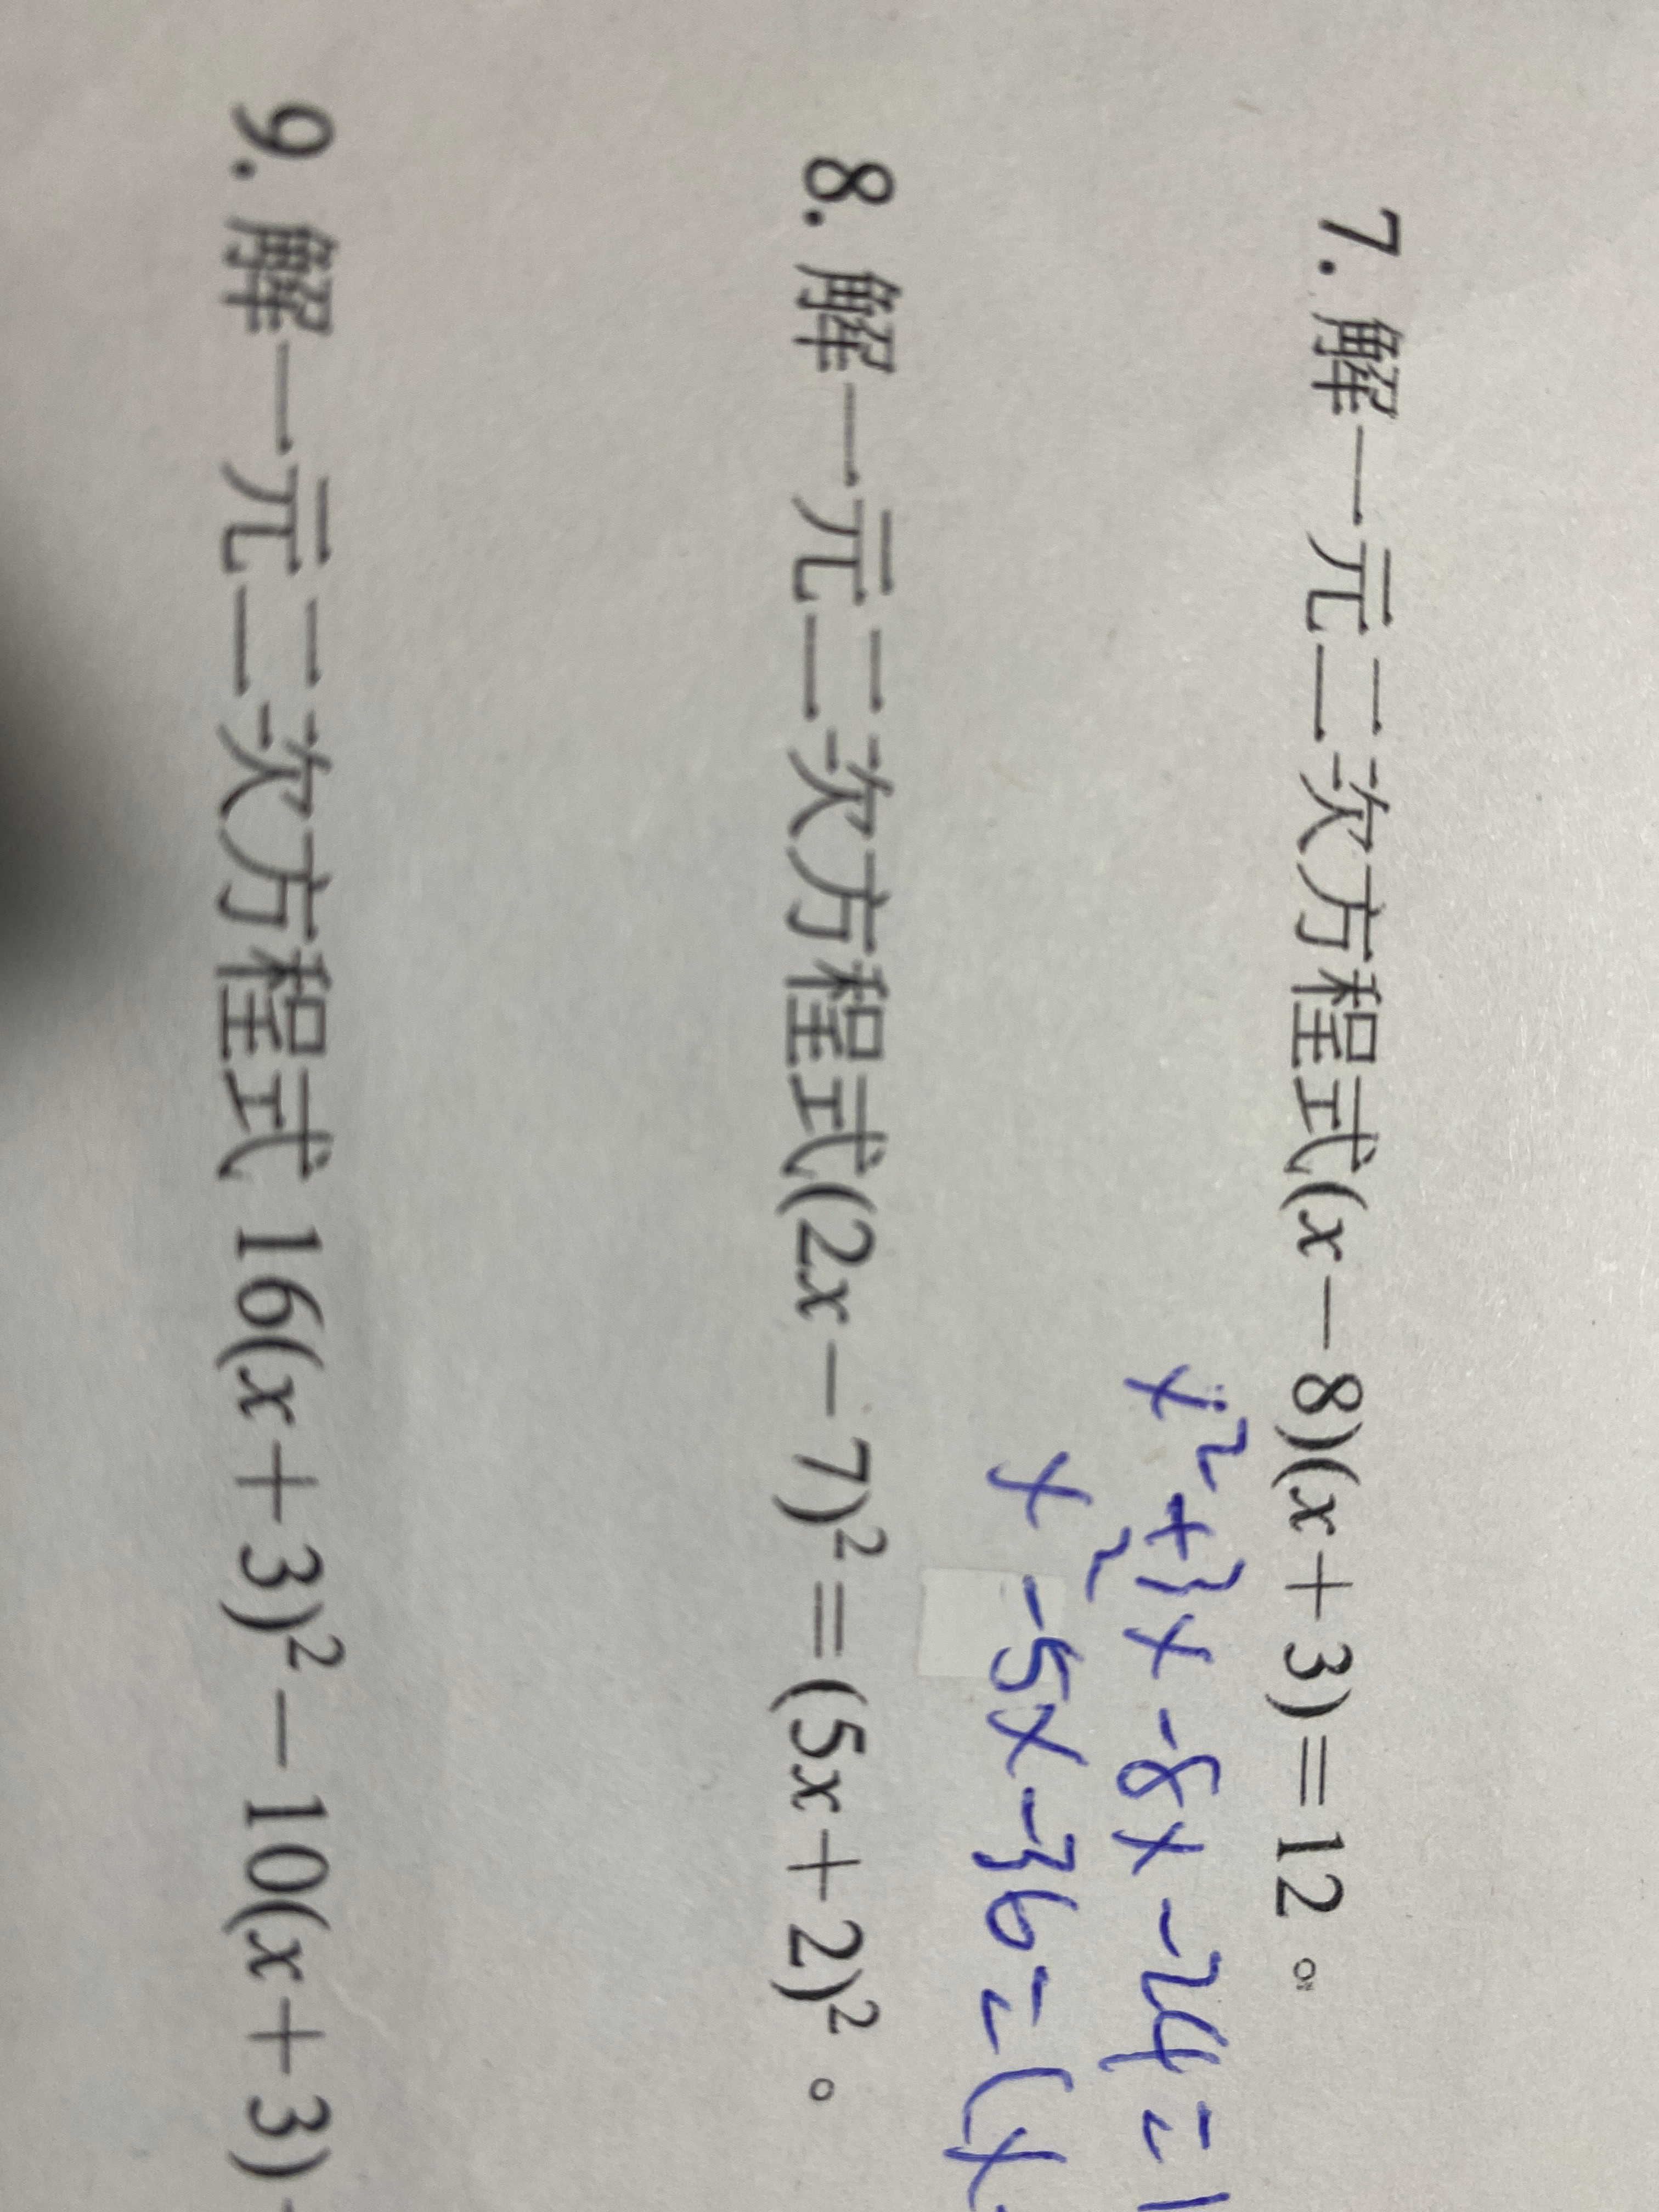 7. 解一元二次方程式(x－8)(x＋3)＝12。
x²+3x-8x-24=1
x²-5x-36=(x
8. 解一元二次方程式(2x－7)²＝(5x＋2)²。
9. 解一元二次方程式 16(x＋3)²－10(x＋3)